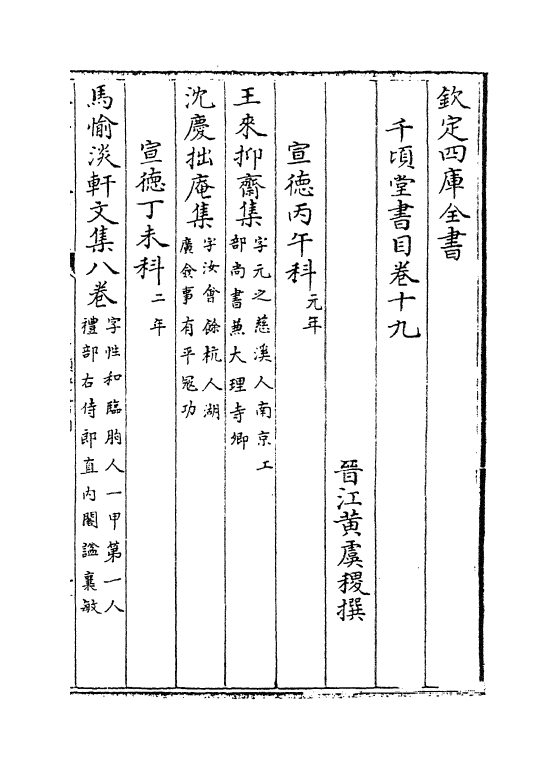 欽定四庫全書
千頃堂書目卷十九
晉江黄虞稷撰
宣德丙午科元年
王來抑齋集字元之慈溪人南京工
部尚書兼大理寺卿
沈慶拙庵集字汝會餘杭人湖
廣僉事有平冦功
宣德丁未科二年
馬愉淡軒文集八卷字性和臨朐人一甲第一人
禮部右侍郎直内閣諡襄敏